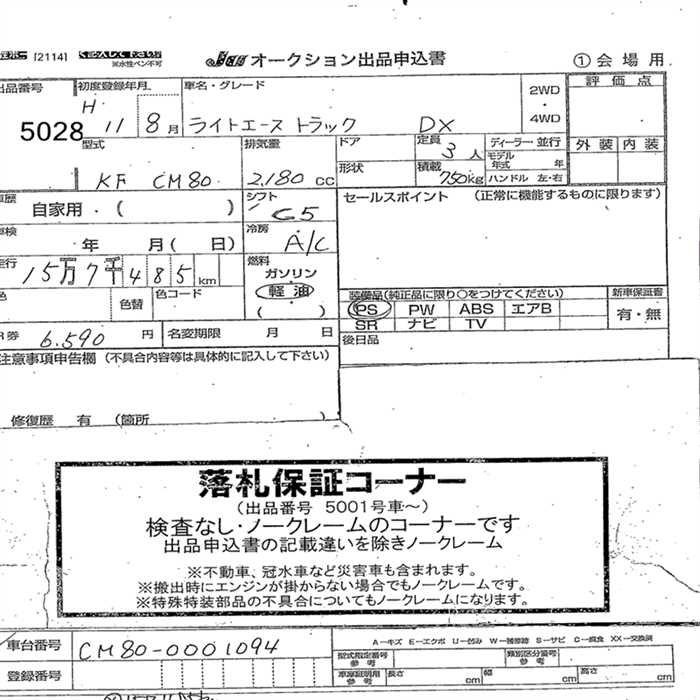 [2114] 記入して下さい
※水性ペン不可
JAA オークション出品申込書 ①会場用
出品番号 初度登録年月 車名・グレード 2WD・4WD 評価点
5028 H 11 8月 ライトエース トラック DX
型式 排気量 ドア 定員 3人 ディーラー・並行 外装 内装
KF CM80 2,180 cc 形状 積載 750kg モデル年式 年 ハンドル 左・右
車歴 自家用・( ) シフト C5 セールスポイント (正常に機能するものに限ります)
車検 年 月( 日) 冷房 A/C
走行 15万7千485km 燃料 ガソリン 軽油 ( )
色 色替 色コード 装備品(純正品に限り○をつけてください) 新車保証書
PS PW ABS エアB 有・無
SR ナビ TV
R券 6,590円 名変期限 月 日 後日品
注意事項申告欄 (不具合内容等は具体的に記入して下さい)
修復歴 有 (箇所 )
落札保証コーナー
(出品番号 5001号車~)
検査なし・ノークレームのコーナーです
出品申込書の記載違いを除きノークレーム
※不動車、冠水車など災害車も含まれます。
※搬出時にエンジンが掛からない場合でもノークレームです。
※特殊特装部品の不具合についてもノークレームになります。
車台番号 CM80-0001094 A-キズ E-エクボ U-凹み W-補修跡 S-サビ C-腐食 XX-交換済
型式指定番号 参考 類別区分番号 参考
登録番号 車庫証明用 参考 長さ cm 幅 cm 高さ cm